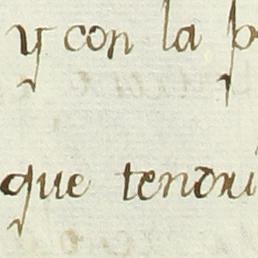 y con la p
que tendri